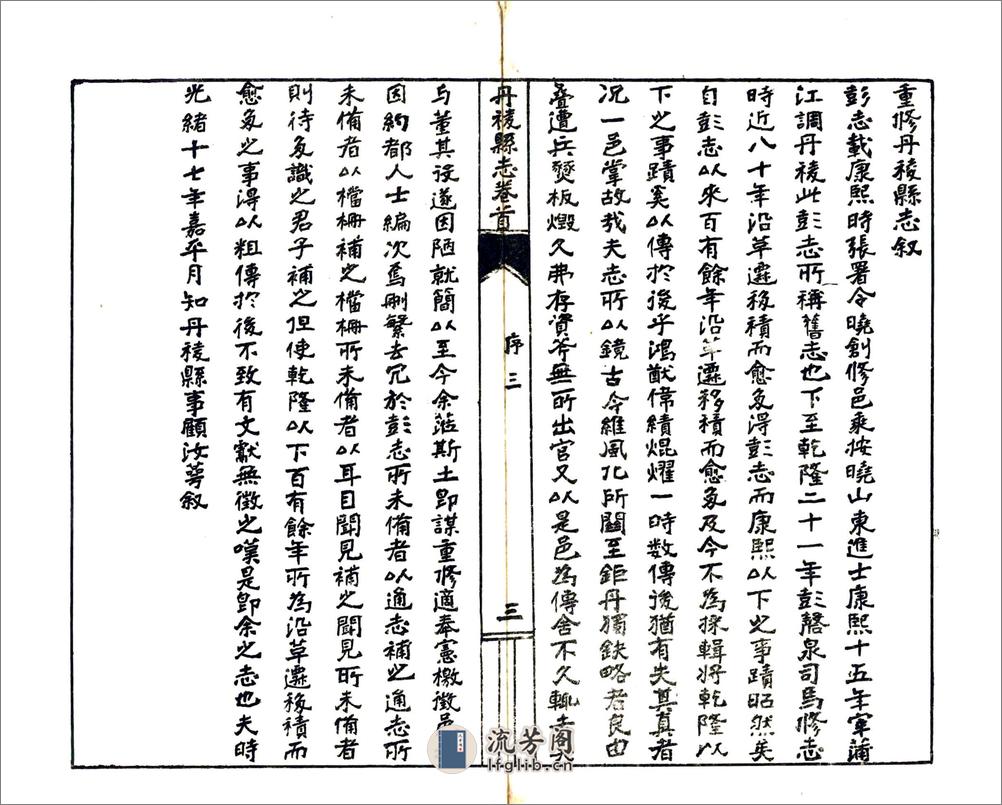 重修丹稜縣志叙
彭志載康熙時張署令曉創修邑乘按曉山東進士康熙十五年宰蒲
江調丹稜此彭志所稱舊志也下至乾隆二十一年彭磬泉司馬修志
時近八十年沿革遷移積而愈多得彭志而康熙以下之事蹟昭然矣
自彭志以來百有餘年沿革遷移積而愈多及今不為採輯將乾隆以
下之事蹟奚以傳於後乎鴻猷偉績焜燿一時数傳後猶有失其真者
况一邑掌故哉夫志所以鏡古今維風化所關至鉅丹獨缺略者良由
疊遭兵燹板燬久弗存資斧無所出官又以是邑為傳舍不久輒去
丹稜縣志卷首
序三
三
与董其役遂因陋就簡以至今余涖斯土即謀重修適奉憲檄徵邑
因約都人士編次焉刪繁去冗於彭志所未備者以通志補之通志所
未備者以檔冊補之檔冊所未備者以耳目聞見補之聞見所未備者
則待多識之君子補之但使乾隆以下百有餘年所為沿革遷移積而
愈多之事得以粗傳於後不致有文獻無徵之嘆是即余之志也夫時
光緒十七年嘉平月知丹稜縣事顧汝萼叙
流芳阁
lfglib.cn